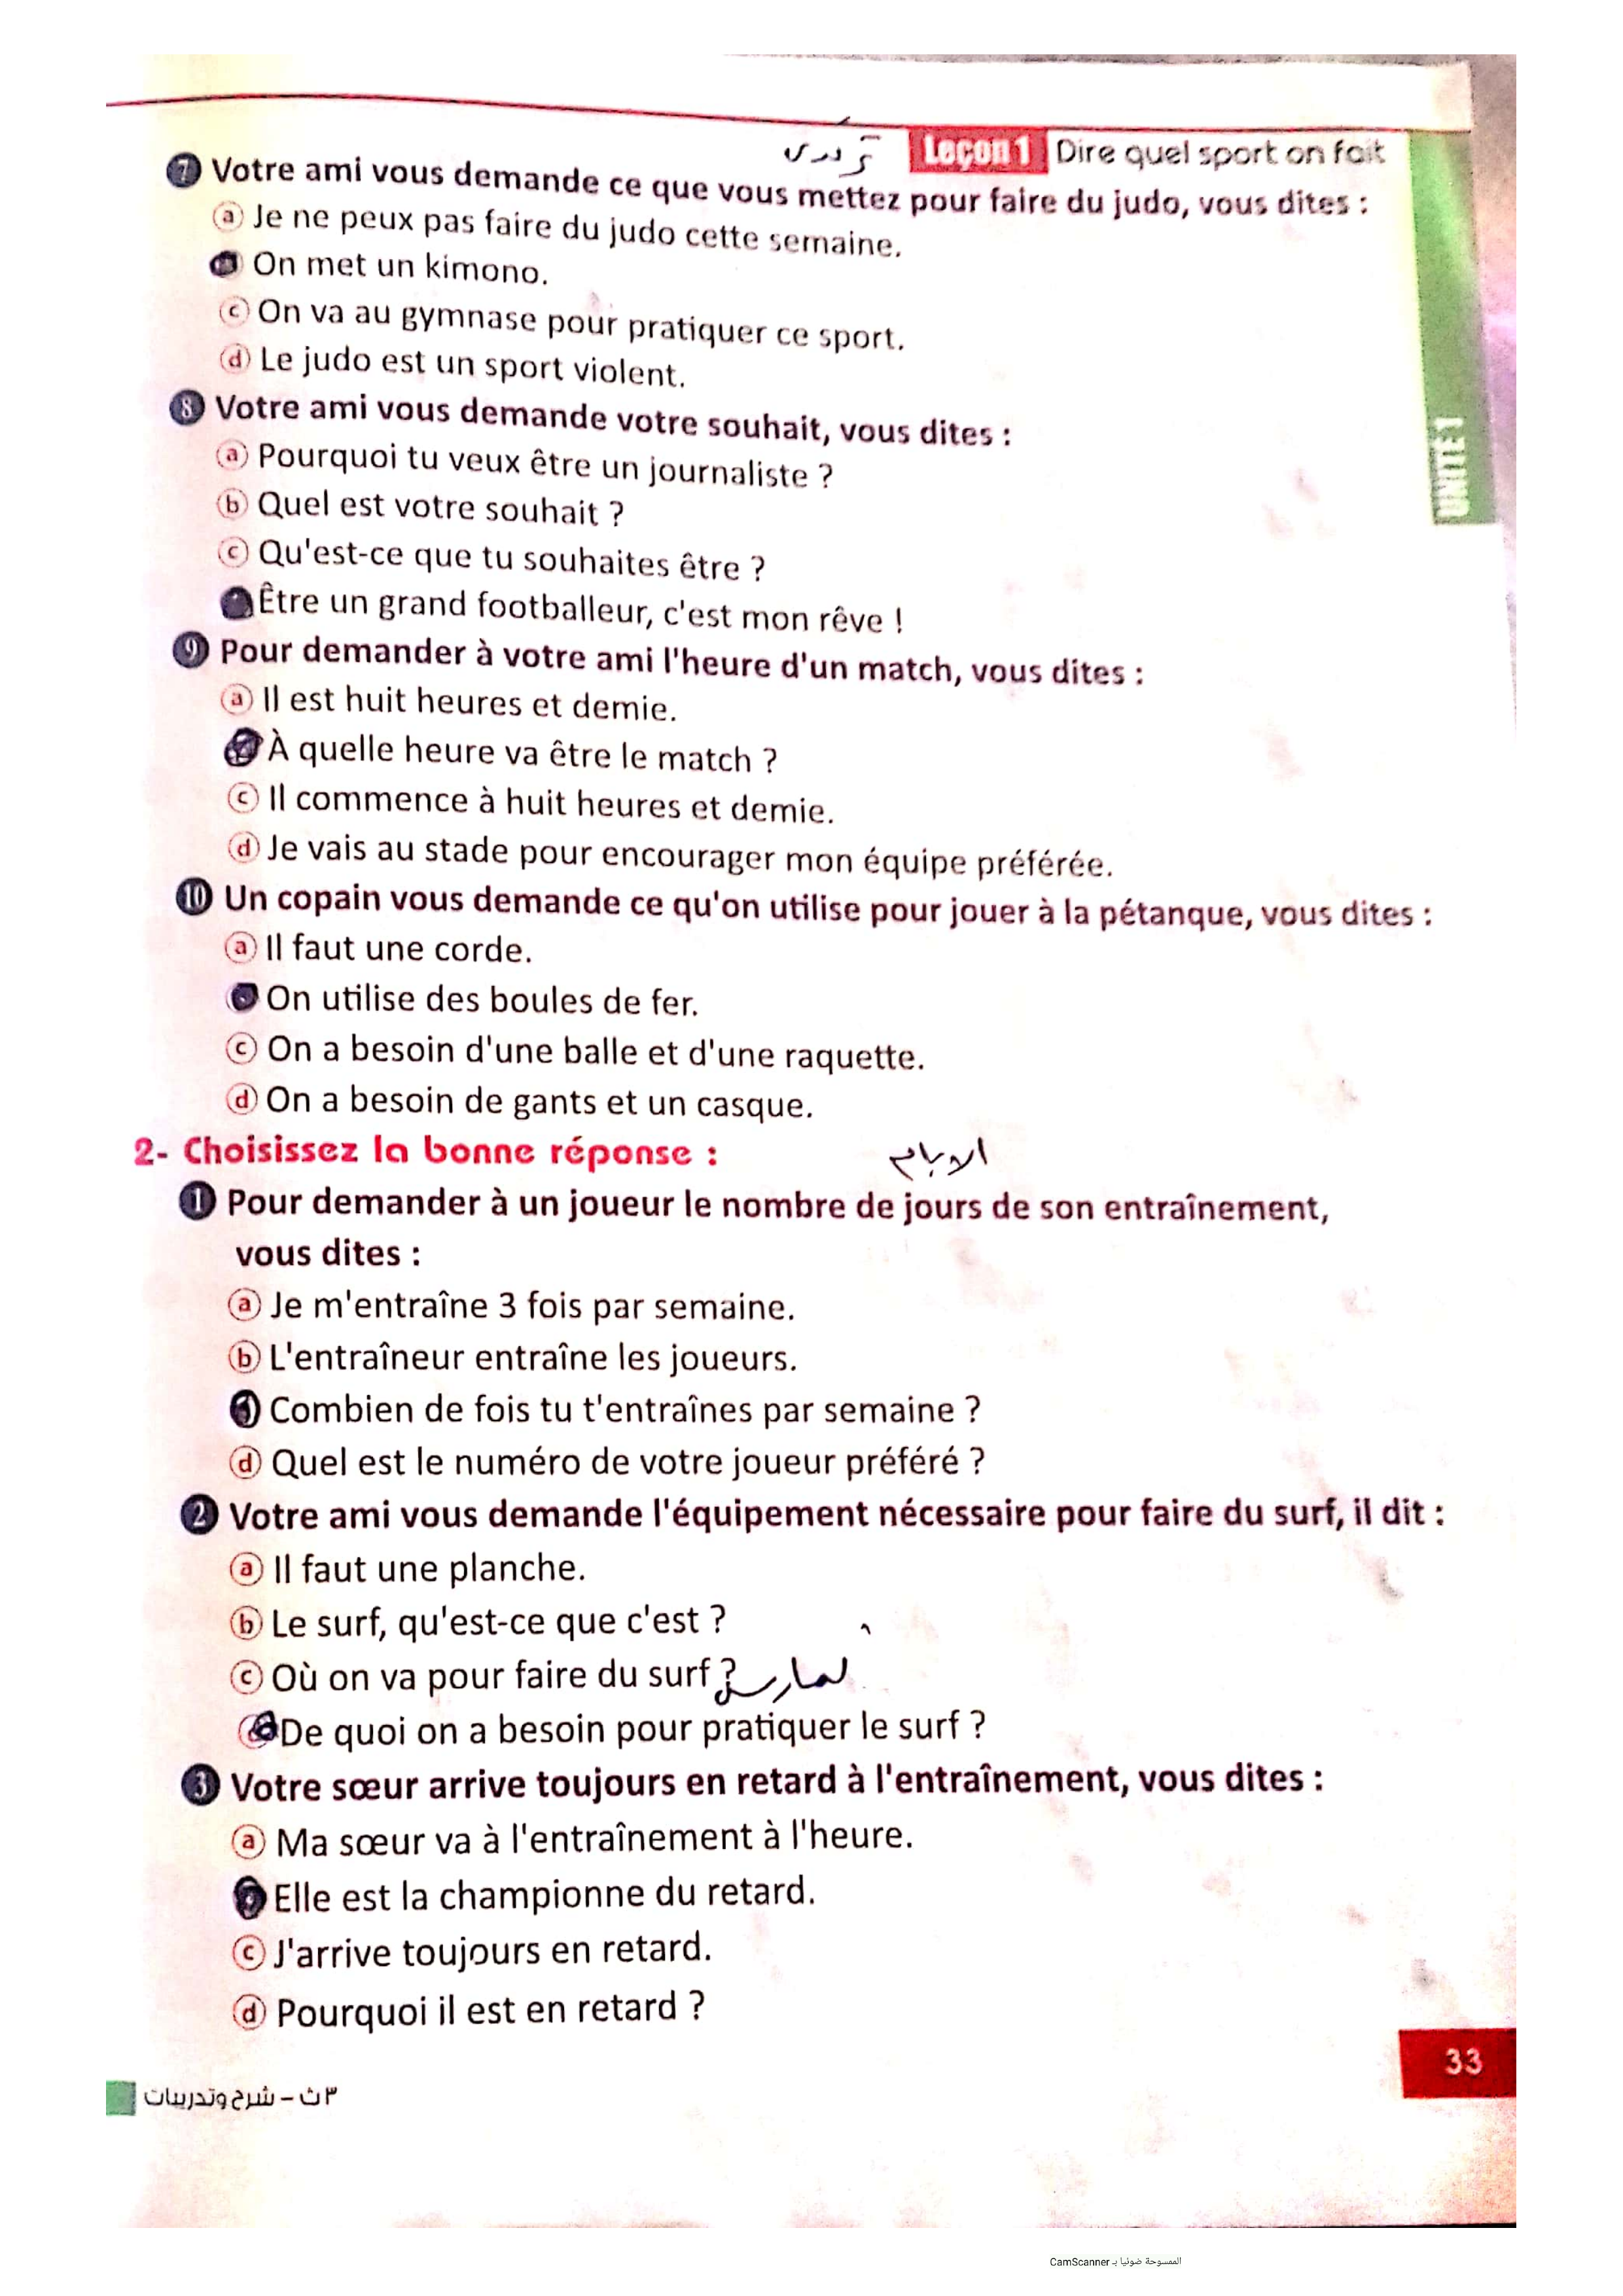 ترتدى
Leçon 1 Dire quel sport on fait
7 Votre ami vous demande ce que vous mettez pour faire du judo, vous dites :
a Je ne peux pas faire du judo cette semaine.
On met un kimono.
c On va au gymnase pour pratiquer ce sport.
d Le judo est un sport violent.
8 Votre ami vous demande votre souhait, vous dites :
a Pourquoi tu veux être un journaliste ?
b Quel est votre souhait ?
c Qu'est-ce que tu souhaites être ?
Être un grand footballeur, c'est mon rêve !
9 Pour demander à votre ami l'heure d'un match, vous dites :
a Il est huit heures et demie.
À quelle heure va être le match ?
c Il commence à huit heures et demie.
d Je vais au stade pour encourager mon équipe préférée.
10 Un copain vous demande ce qu'on utilise pour jouer à la pétanque, vous dites :
a Il faut une corde.
On utilise des boules de fer.
c On a besoin d'une balle et d'une raquette.
d On a besoin de gants et un casque.
2- Choisissez la bonne réponse :
الايام
1 Pour demander à un joueur le nombre de jours de son entraînement,
vous dites :
a Je m'entraîne 3 fois par semaine.
b L'entraîneur entraîne les joueurs.
Combien de fois tu t'entraînes par semaine ?
d Quel est le numéro de votre joueur préféré ?
2 Votre ami vous demande l'équipement nécessaire pour faire du surf, il dit :
a Il faut une planche.
b Le surf, qu'est-ce que c'est ?
c Où on va pour faire du surf ?
De quoi on a besoin pour pratiquer le surf ?
3 Votre sœur arrive toujours en retard à l'entraînement, vous dites :
a Ma sœur va à l'entraînement à l'heure.
Elle est la championne du retard.
c J'arrive toujours en retard.
d Pourquoi il est en retard ?
UNITÉ 1
33
٣ث - شرح وتدريبات
الممسوحة ضوئيا بـ CamScanner